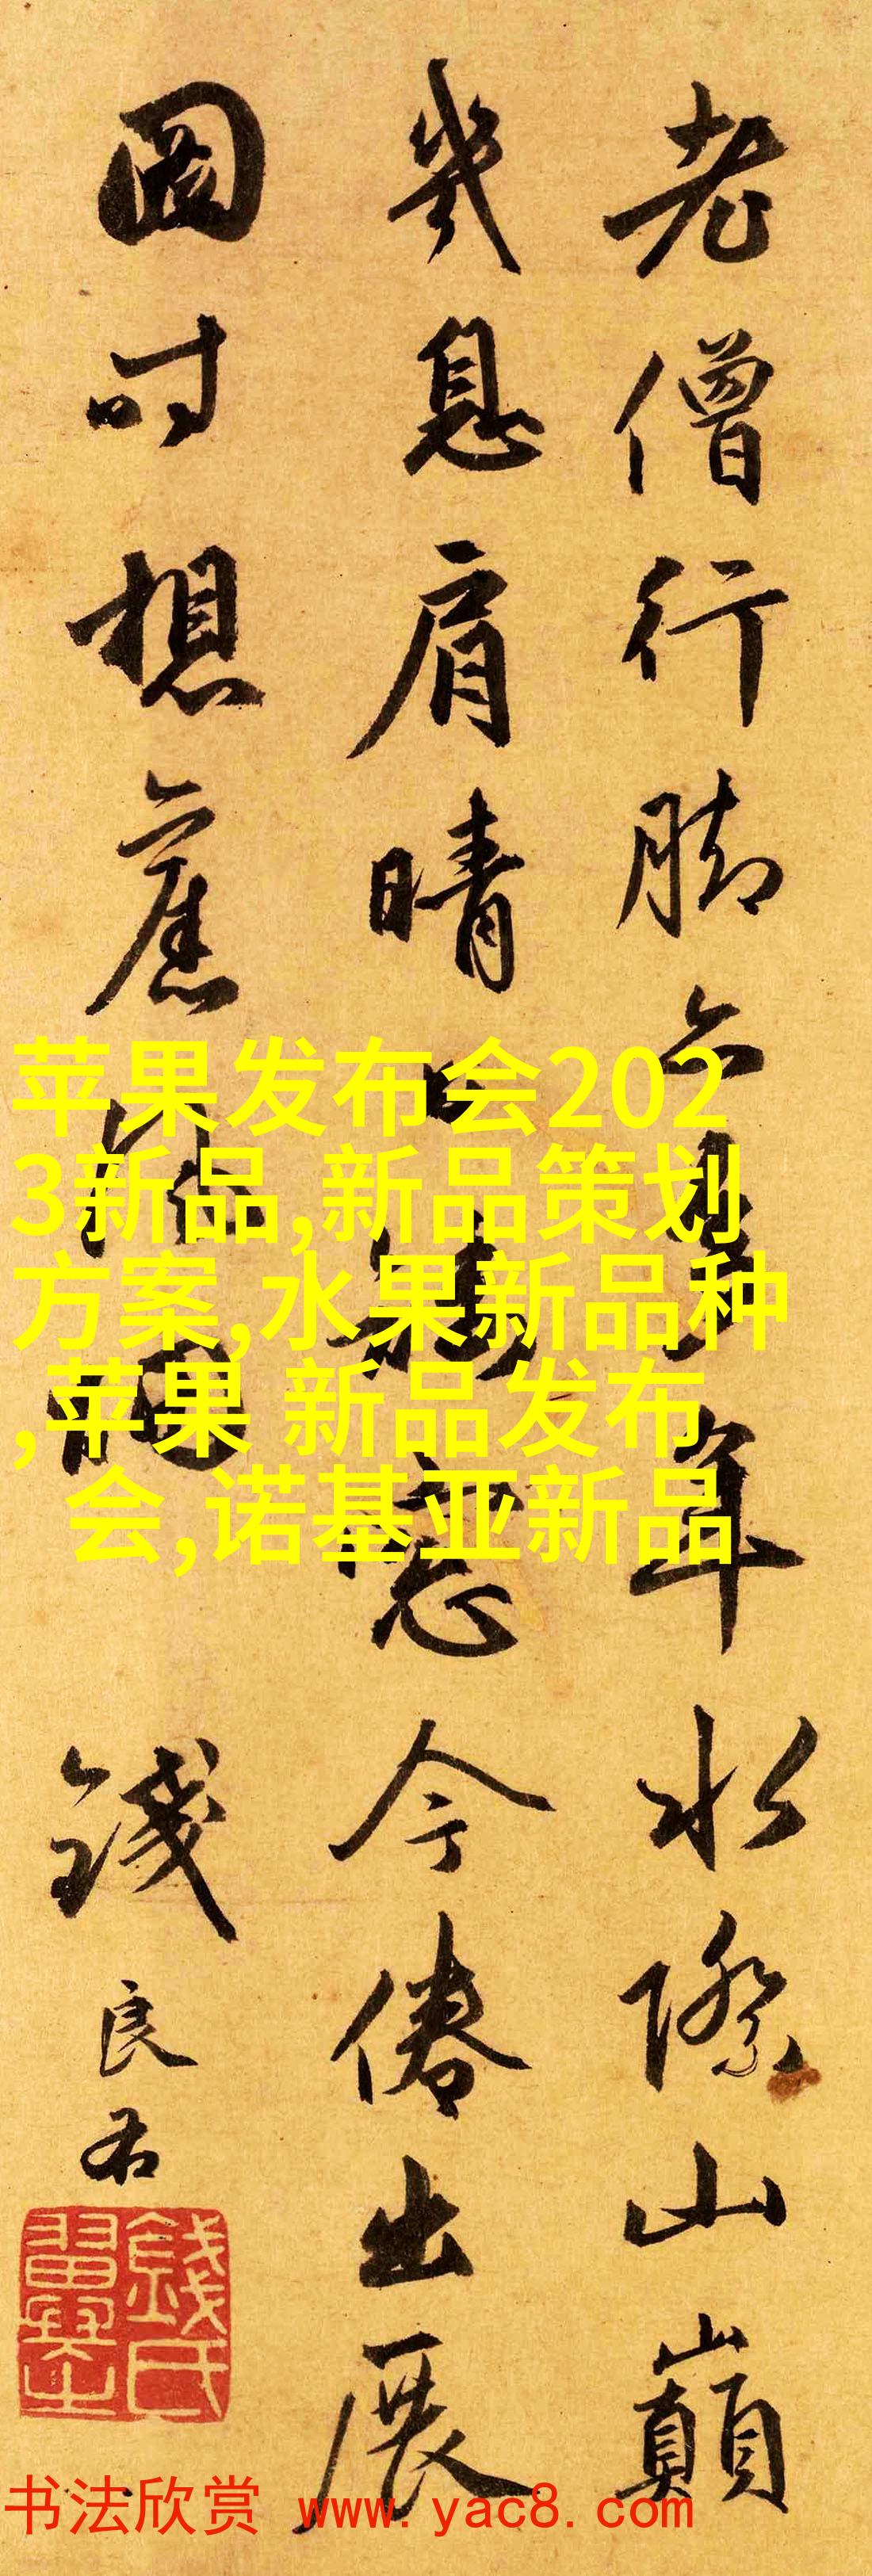 老僧行脚年水際山巔
幾息肩晴今倦出展
圖时想舊
錢良右
錢氏翼之
苹果发布会202
3新品,新品策划
方案,水果新品种
,苹果 新品发布
会,诺基亚新品
书法欣赏 www.yac8.com